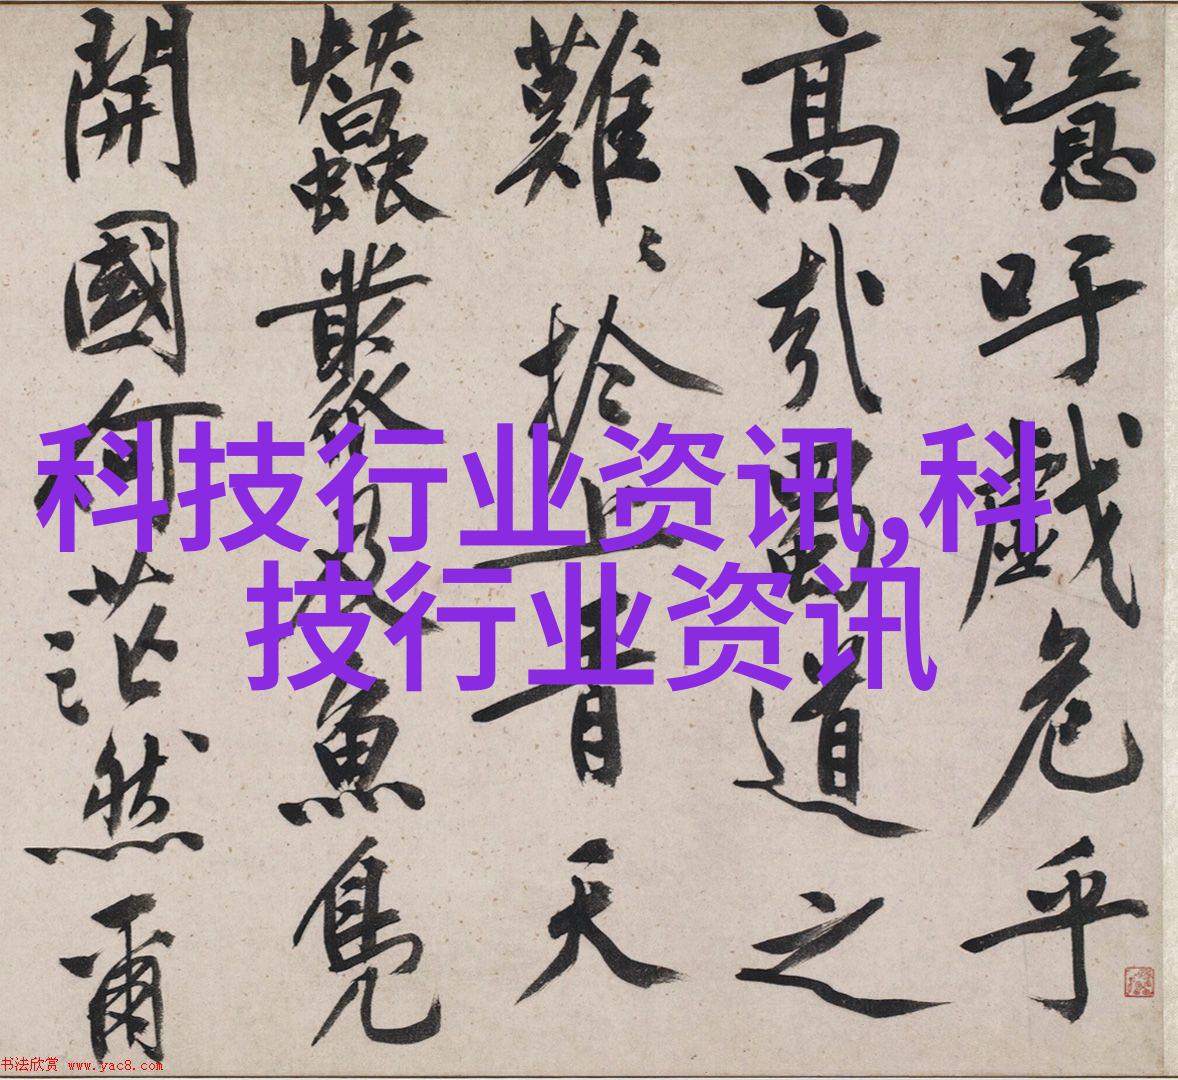 噫吁戲危乎
高哉蜀道之
難〻於上青天
蠶叢及魚鳧
開國何茫然爾
科技行业资讯,科
技行业资讯
书法欣赏 www.yac8.com